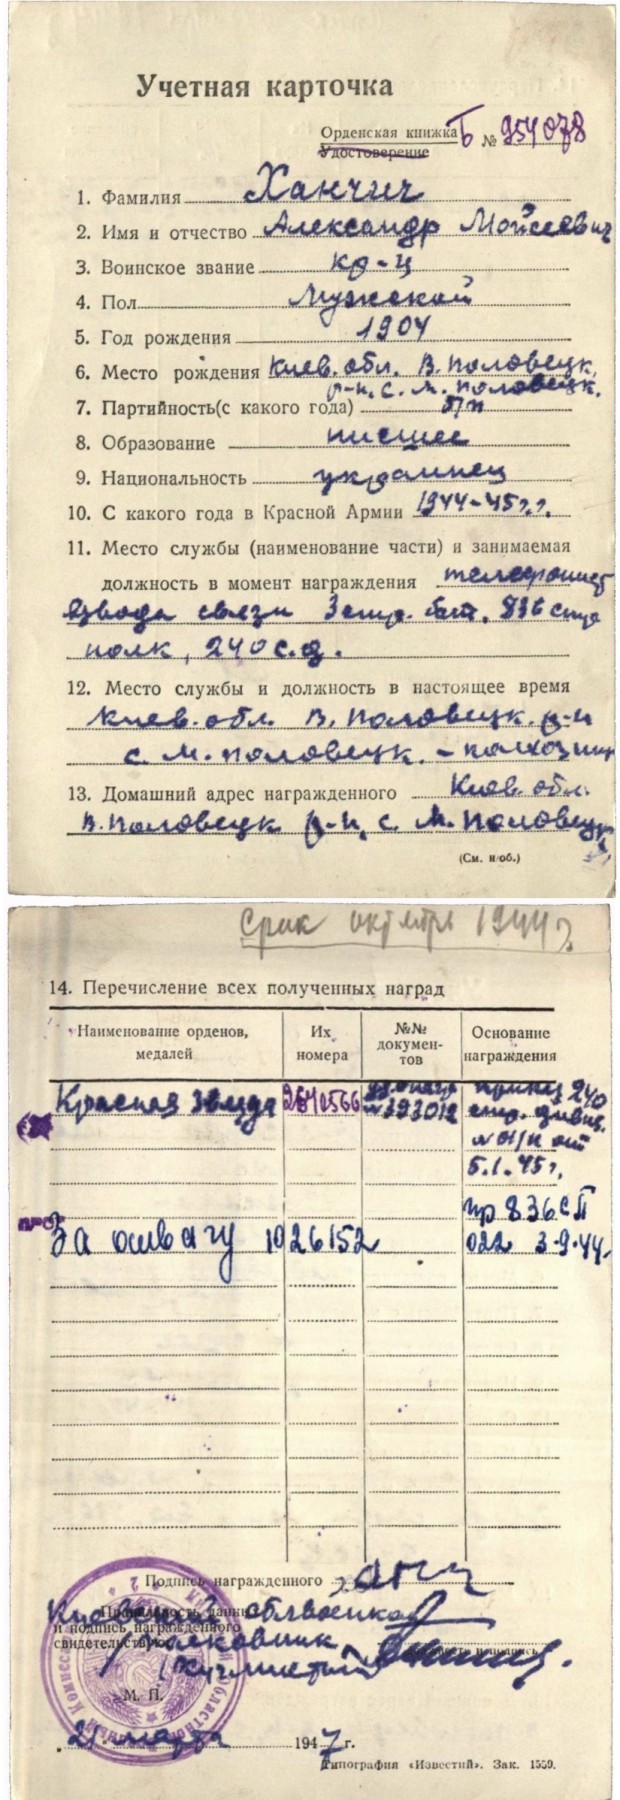 Учетная карточка
Орденская книжка Б № 954078
Удостоверение
1. Фамилия Ханчич
2. Имя и отчество Александр Мойсеевич
3. Воинское звание кр-ц
4. Пол Мужской
5. Год рождения 1904
6. Место рождения Киев. обл. В. Половецк.
р-н, с. М. Половецк.
7. Партийность(с какого года) б/п
8. Образование низшее
9. Национальность украинец
10. С какого года в Красной Армии 1944-45 г.г.
11. Место службы (наименование части) и занимаемая
должность в момент награждения телефонист
взвода связи 3 стр. бат. 836 стр
полк, 240 с.д.
12. Место службы и должность в настоящее время
Киев. обл. В. Половецк. р-н
с. М. Половецк. - колхозник
13. Домашний адрес награжденного Киев. обл.
В. Половецк р-н, с. М. Половецк
(См. н/об.)
Срок октябрь 1944 г.
14. Перечисление всех полученных наград
Наименование орденов, медалей
Их номера
№№ докумен-тов
Основание награждения
Красная Звезда 2640566 № 393012 приказ 240
стр. дивиз.
№ 01/н от
5.1.45 г.
пр 836 сП
За отвагу 1026152 022 3.9.44.
Подпись награжденного
Киевский облвоенком
Правильность данных
и подпись награжденного
свидетельствую
полковник
М. П.
21 марта 1947 г.
Типография «Известий». Зак. 1559.